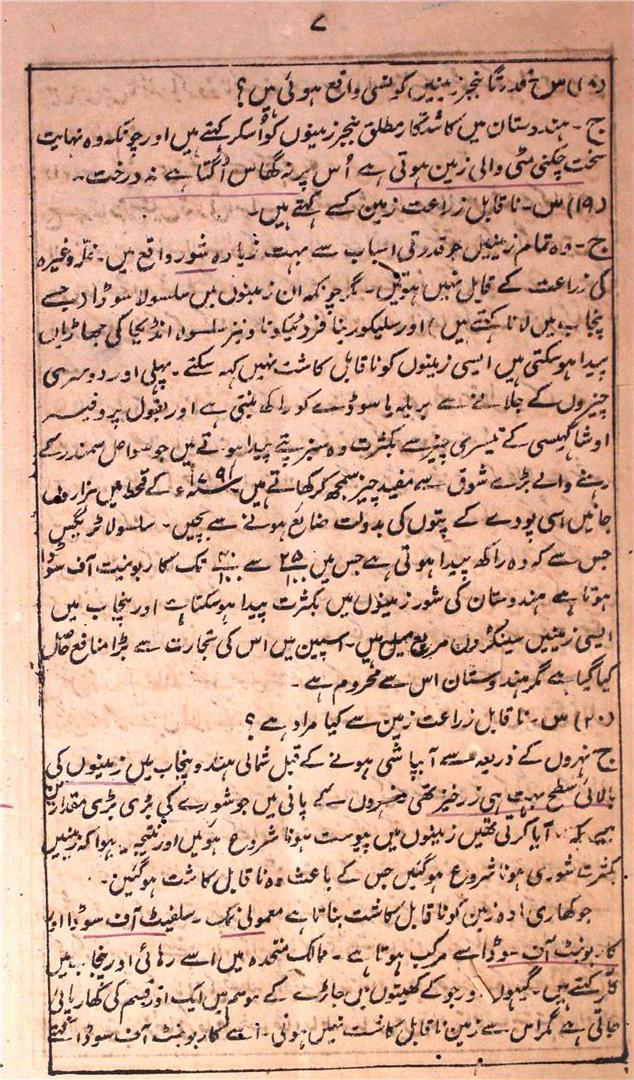 ۷
(۱۸) س ۔ قدرتاً بنجر زمینیں کونسی واقع ہوئی ہیں؟
ج ۔ ہندوستان میں کاشتکار مطلق بنجر زمینوں کو اُسکر کہتے ہیں اور چونکہ وہ نہایت
سخت چکنی مٹی والی زمین ہوتی ہے اُس پر نہ گھاس اُگتا ہے نہ درخت ۔
(۱۹) س ۔ ناقابل زراعت زمین کسے کہتے ہیں ۔
ج ۔ وہ تمام زمینیں جو قدرتی اسباب سے بہت زیادہ شور واقع ہیں ۔ غلہ وغیرہ
کی زراعت کے قابل نہیں ہوتیں ۔ مگر چونکہ ان زمینوں میں سلسولا سوڈا (جسے
پنجاب میں لانا کہتے ہیں) اور سلیکورنیا و نیز سلسولہ انڈیکا کی جھاڑیاں
پیدا ہوسکتی ہیں ایسی زمینوں کو ناقابل کاشت نہیں کہہ سکتے ۔ پہلی اور دوسری
چیزوں کے جلانے سے یا سوڈے کو راکھ بنتی ہے اور بقول پروفیسر
اوشاگہنسی کے تیسری چیز سے بکثرت وہ سبز پتے پیدا ہوتے ہیں جو سواحل سمندر کے
رہنے والے بڑے شوق سے مفید چیز سمجھ کر کھاتے ہیں ۔ ۱۷۹۱ء کے قحط میں ہزاروں
جانیں اسی پودے کے پتوں کی بدولت ضایع ہونے سے بچیں ۔ سلسولا ٹریگس
جس سے کہ وہ راکھ پیدا ہوتی ہے جس میں ۲۵/۱۰۰ سے ۴۰/۱۰۰ تک کاربونیٹ آف سوڈا
ہوتا ہے ہندوستان کی شور زمینوں میں بکثرت پیدا ہوسکتا ہے اور پنجاب میں
ایسی زمینیں سینکڑوں مربع میل ہیں ۔ اسپین میں اس کی تجارت سے بڑا منافع حاصل
کیا گیا ہے مگر ہندوستان اس سے محروم ہے ۔
(۲۰) س ۔ ناقابل زراعت زمین سے کیا مراد ہے؟
ج نہروں کے ذریعہ سے آبپاشی ہونے کے قبل شمالی ہند و پنجاب میں زمینوں کی
بالائی سطح بہت ہی زرخیز تھی نہروں کے پانی میں جو شورے کی بڑی بڑی مقداریں
آیا کرتی تھیں زمینوں میں پیوست ہونا شروع ہوئیں اور نتیجہ یہ ہوا کہ زمینیں
بکثرت شوری ہونا شروع ہوگئیں جس کے باعث وہ ناقابل کاشت ہوگئیں ۔
جو کھاری مادہ زمین کو ناقابل کاشت بناتا ہے معمولی نمک ۔ سلفیٹ آف سوڈا اور
کاربونیٹ آف سوڈا سے مرکب ہوتا ہے ۔ ممالک متحدہ میں اسے رہائی اور پنجاب میں
کلر کہتے ہیں ۔ گیہوں اور جو کے کھیتوں میں جاڑے کے موسم میں ایک اور قسم کی کھار پائی
جاتی ہے مگر اس سے زمین ناقابل کاشت نہیں ہوتی ۔ اسے کاربونٹ آف سوڈا کہتے